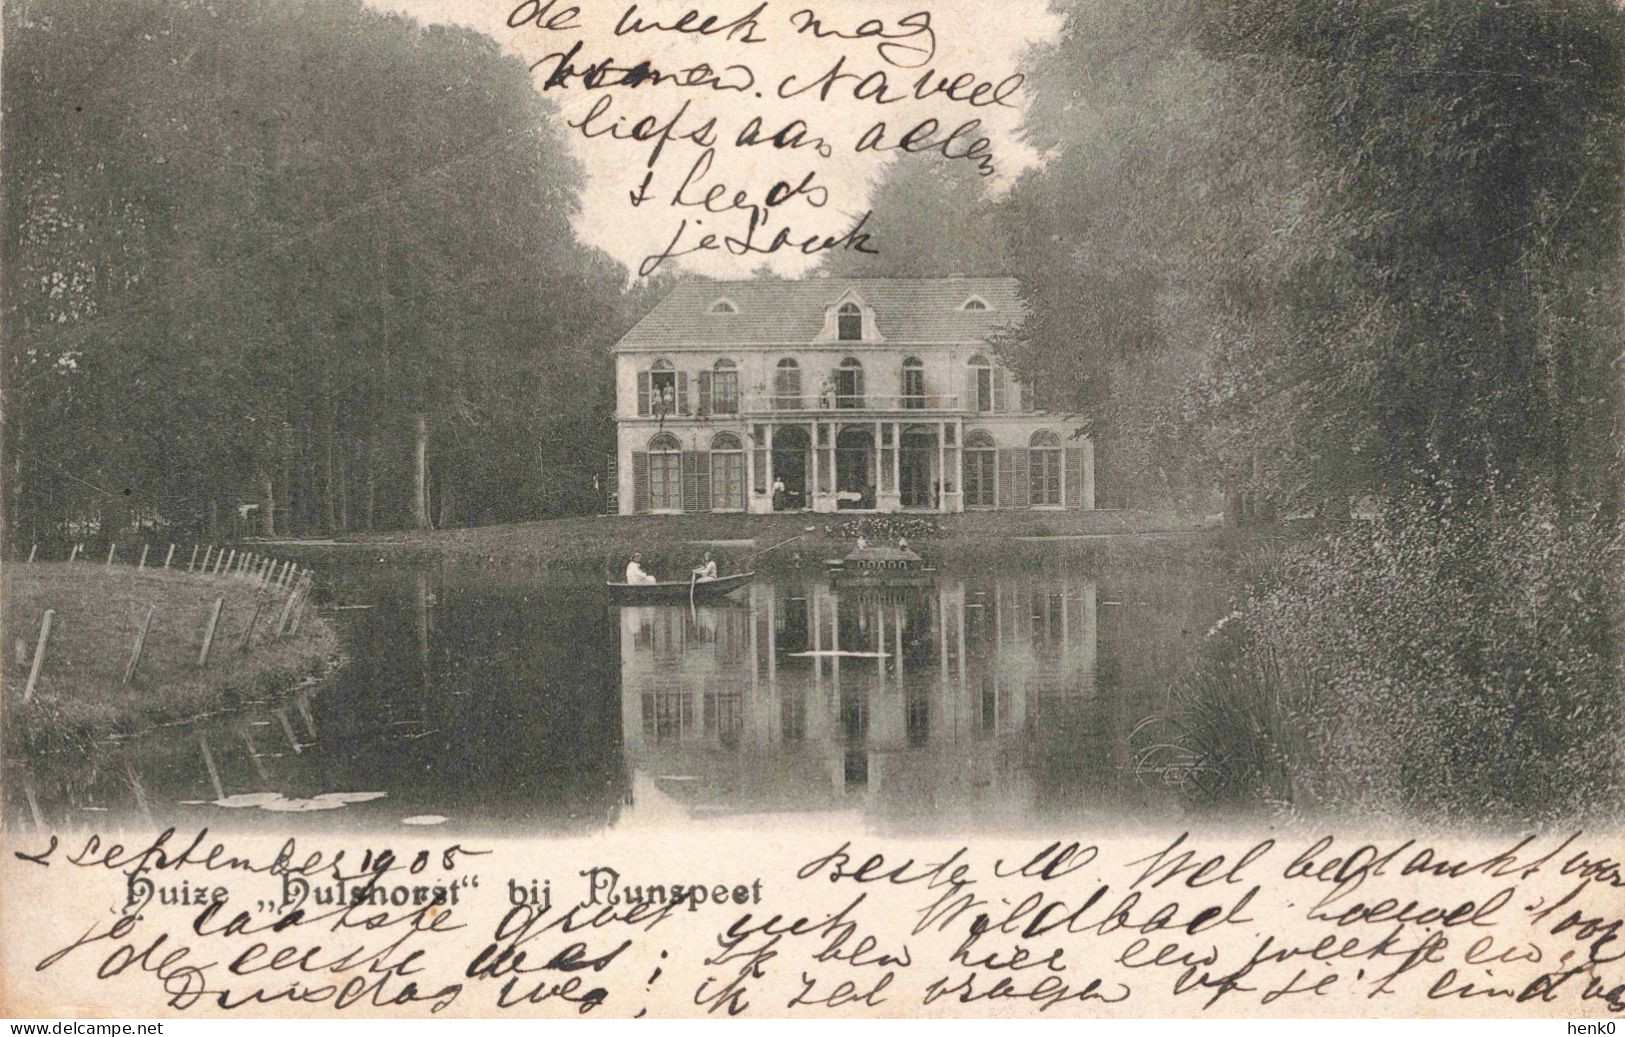 de week mag
komen. Na veel
liefs aan allen
steeds
je Louk
2 September 1905
Huize „Hulshorst“ bij Nunspeet
Beste M. Wel bedankt voor
je laatste groet uit Wildbad hoewel 't ook
de eerste was; Ik ben hier een weekje en
Dinsdag weg; ik zal vragen of je 't eind van
www.delcampe.net
henk0